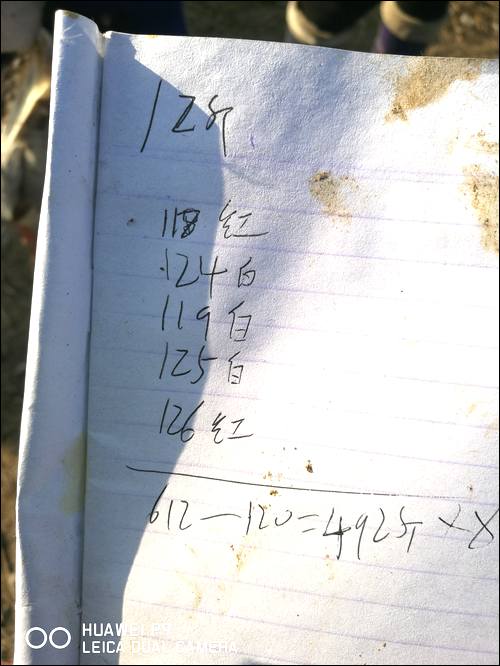 12斤
118 红
124 白
119 白
125 白
126 红
612-120=492斤 ×
HUAWEI P9
LEICA DUAL CAMERA